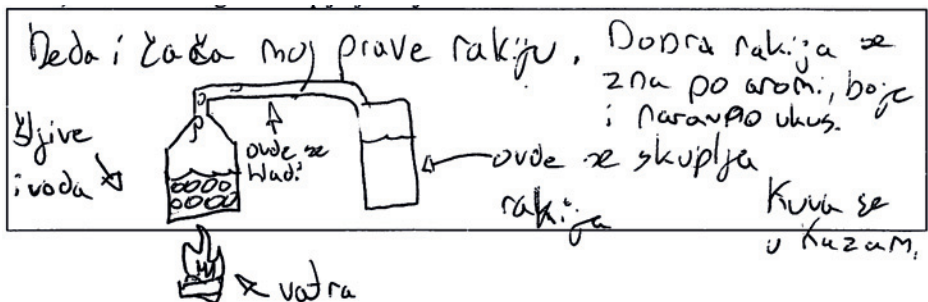 Deda i čača moj prave rakiju.
Dobra rakija se
zna po aromi, boje
i naravno ukus.
šljive
i voda
ovde se
hladi
ovde se skuplja
rakija
Kuva se
u kazam.
vatra